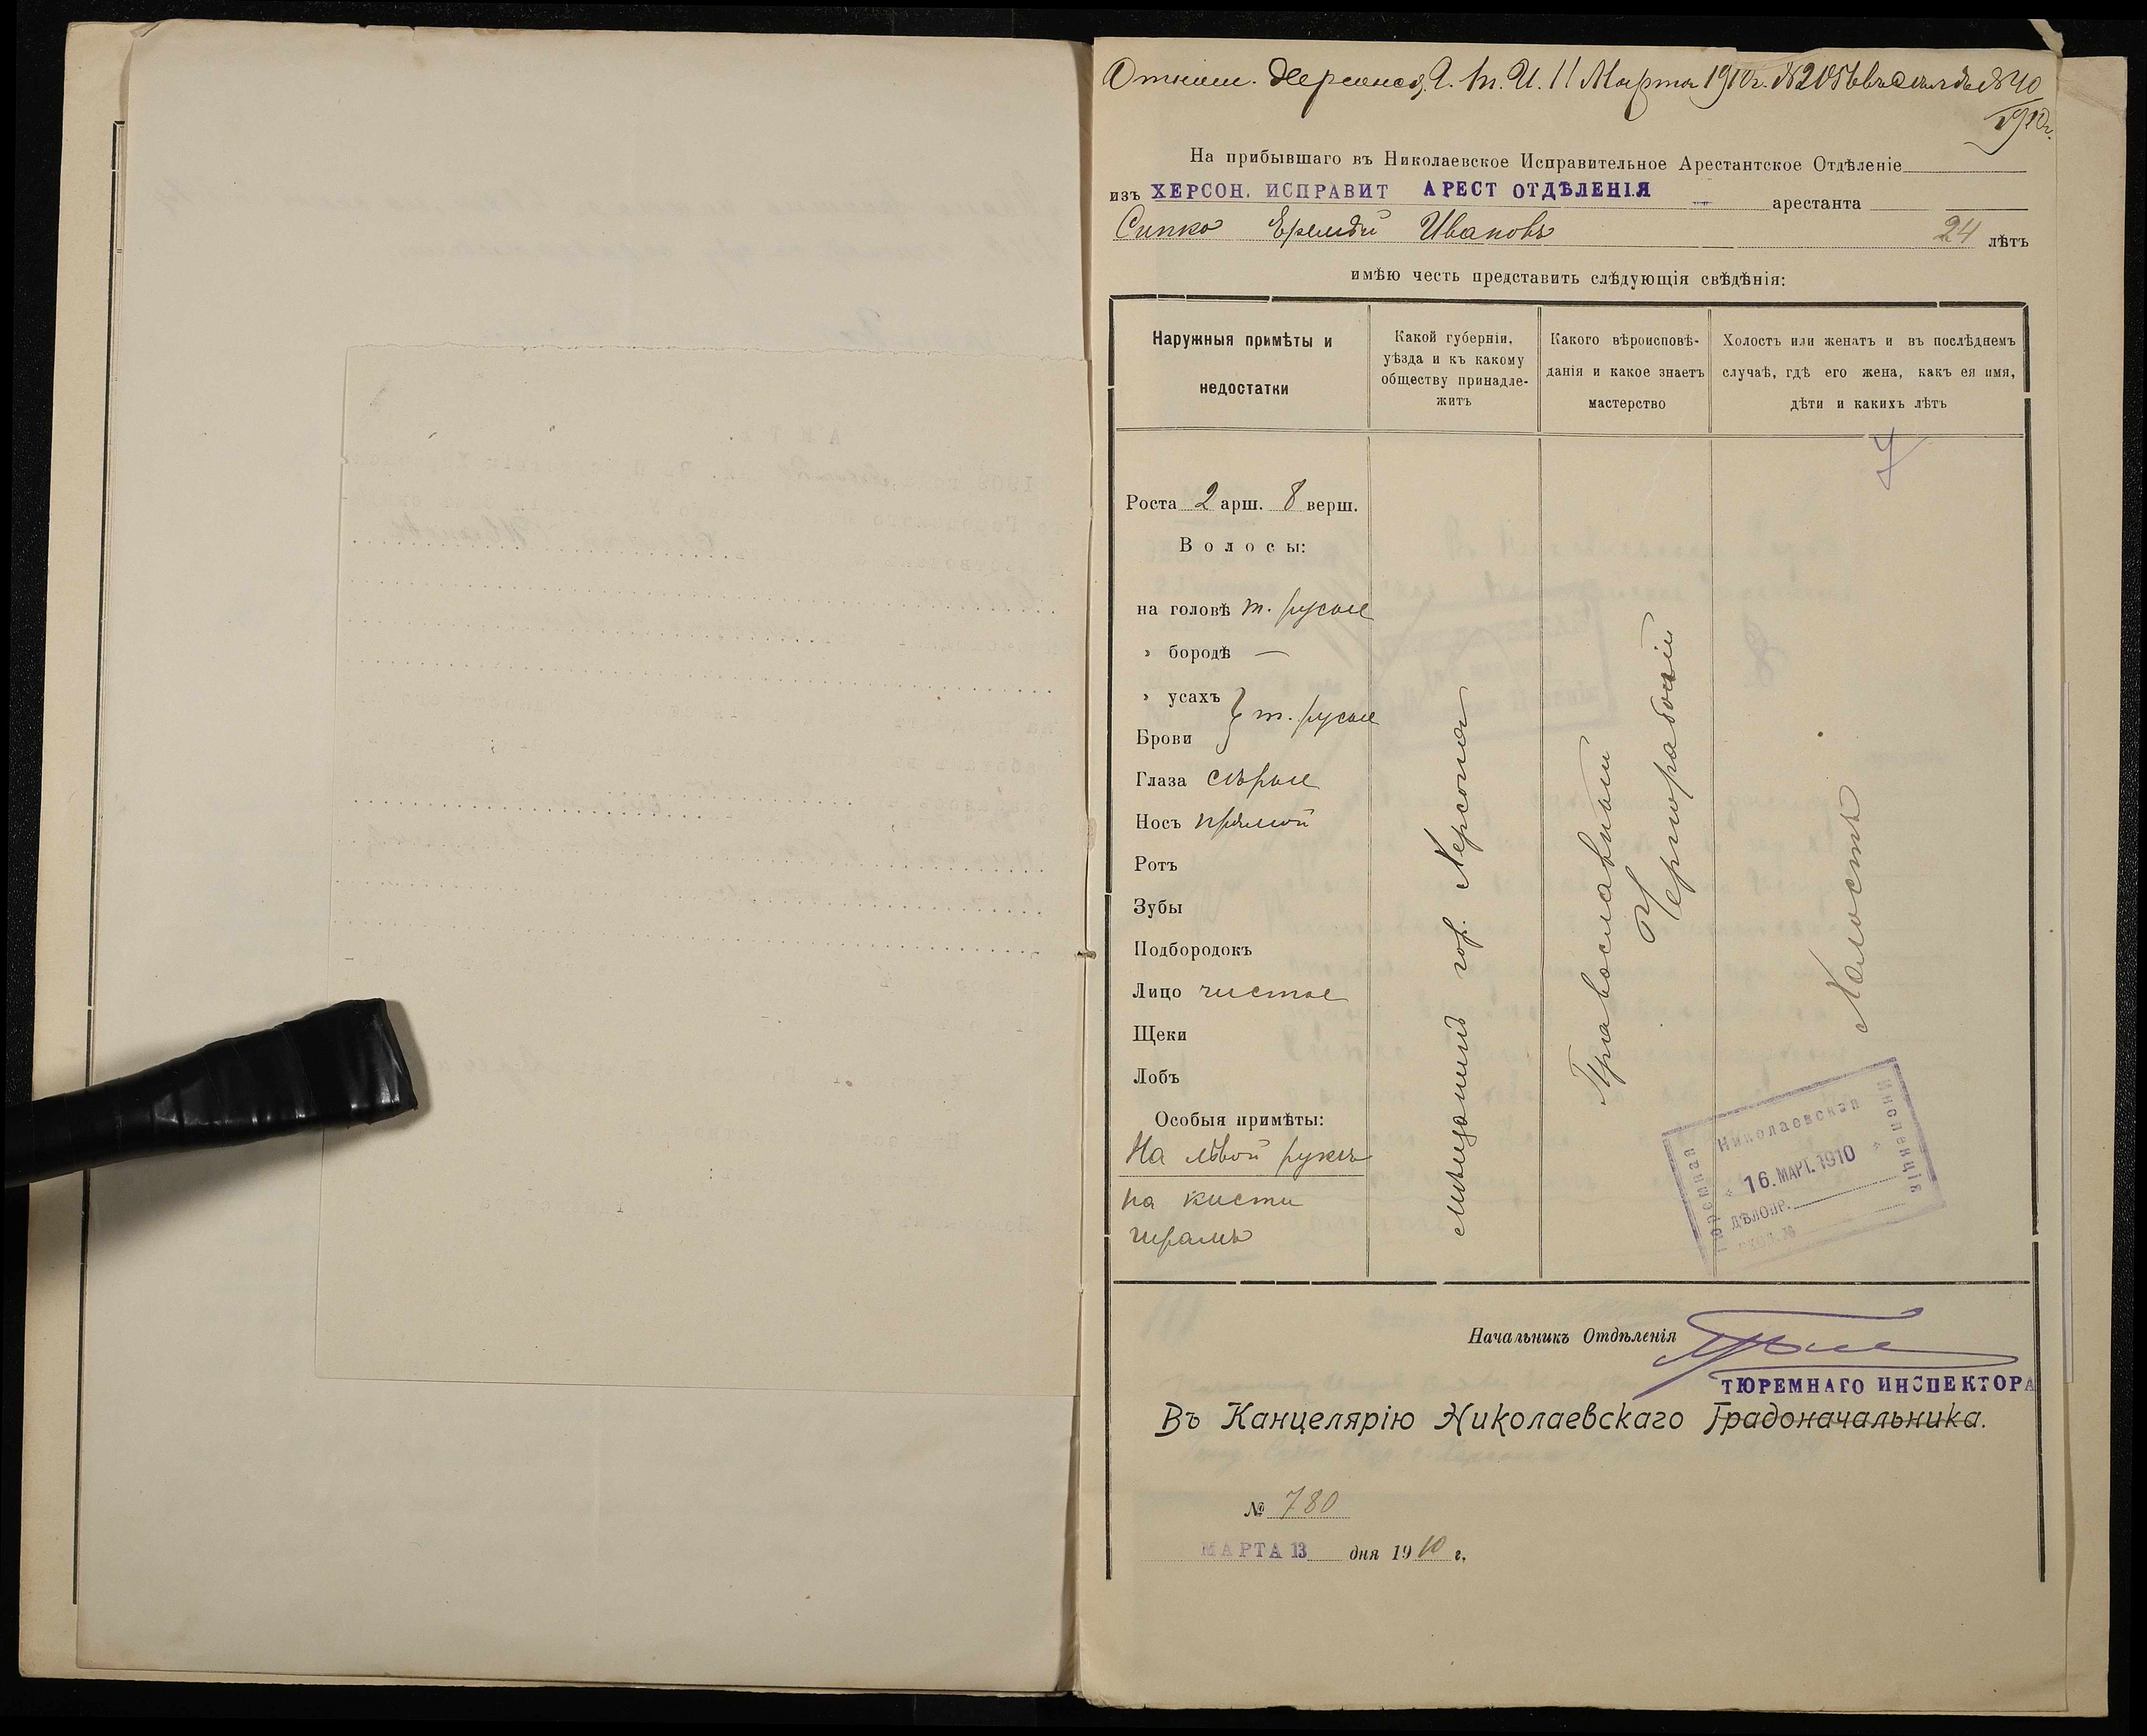 Отнош. Херсонск. Г. Т. И. 11 Марта 1910 г. № 2056 въ дѣлѣ № 40
1910 г.
На прибывшаго въ Николаевское Исправительное Арестантское Отдѣленіе
изъ ХЕРСОН. ИСПРАВИТ АРЕСТ ОТДѢЛЕНІЯ арестанта
Сипко Еремѣй Ивановъ 24 лѣтъ
имѣю честь представить слѣдующія свѣдѣнія:
Наружныя примѣты и
недостатки
Какой губерніи,
уѣзда и къ какому
обществу принадле-
житъ
Какого вѣроисповѣ-
данія и какое знаетъ
мастерство
Холостъ или женатъ и въ послѣднемъ
случаѣ, гдѣ его жена, какъ ея имя,
дѣти и какихъ лѣтъ
Роста 2 арш. 8 верш.
Волосы:
на головѣ т. русые
» бородѣ —
» усахъ
Брови } т. русые
Глаза сѣрые
Носъ прямой
Ротъ
Зубы
Подбородокъ
Лицо чистое
Щеки
Лобъ
Особыя примѣты:
На лѣвой рукѣ
на кисти
шрамъ
мѣщанинъ гор. Херсона
Православный
Чернорабочій
Холостъ
Николаевская
Тюремная
Инспенція
16. МАРТ. 1910
ДѢЛОПР.
Начальникъ Отдѣленія
ТЮРЕМНАГО ИНСПЕКТОРА
Въ Канцелярію Николаевскаго Градоначальника.
№ 780
МАРТА 13 дня 1910 г.